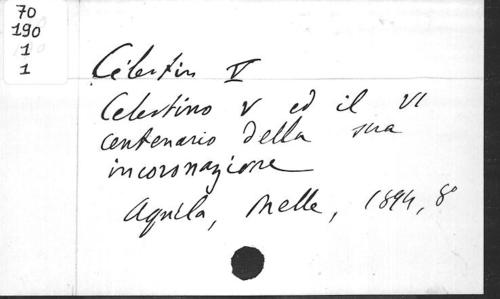 70
190
1
1
Célestin V
Celestino V ed il VI
centenario della sua
incoronazione
Aquila, Melle, 1894, 8°